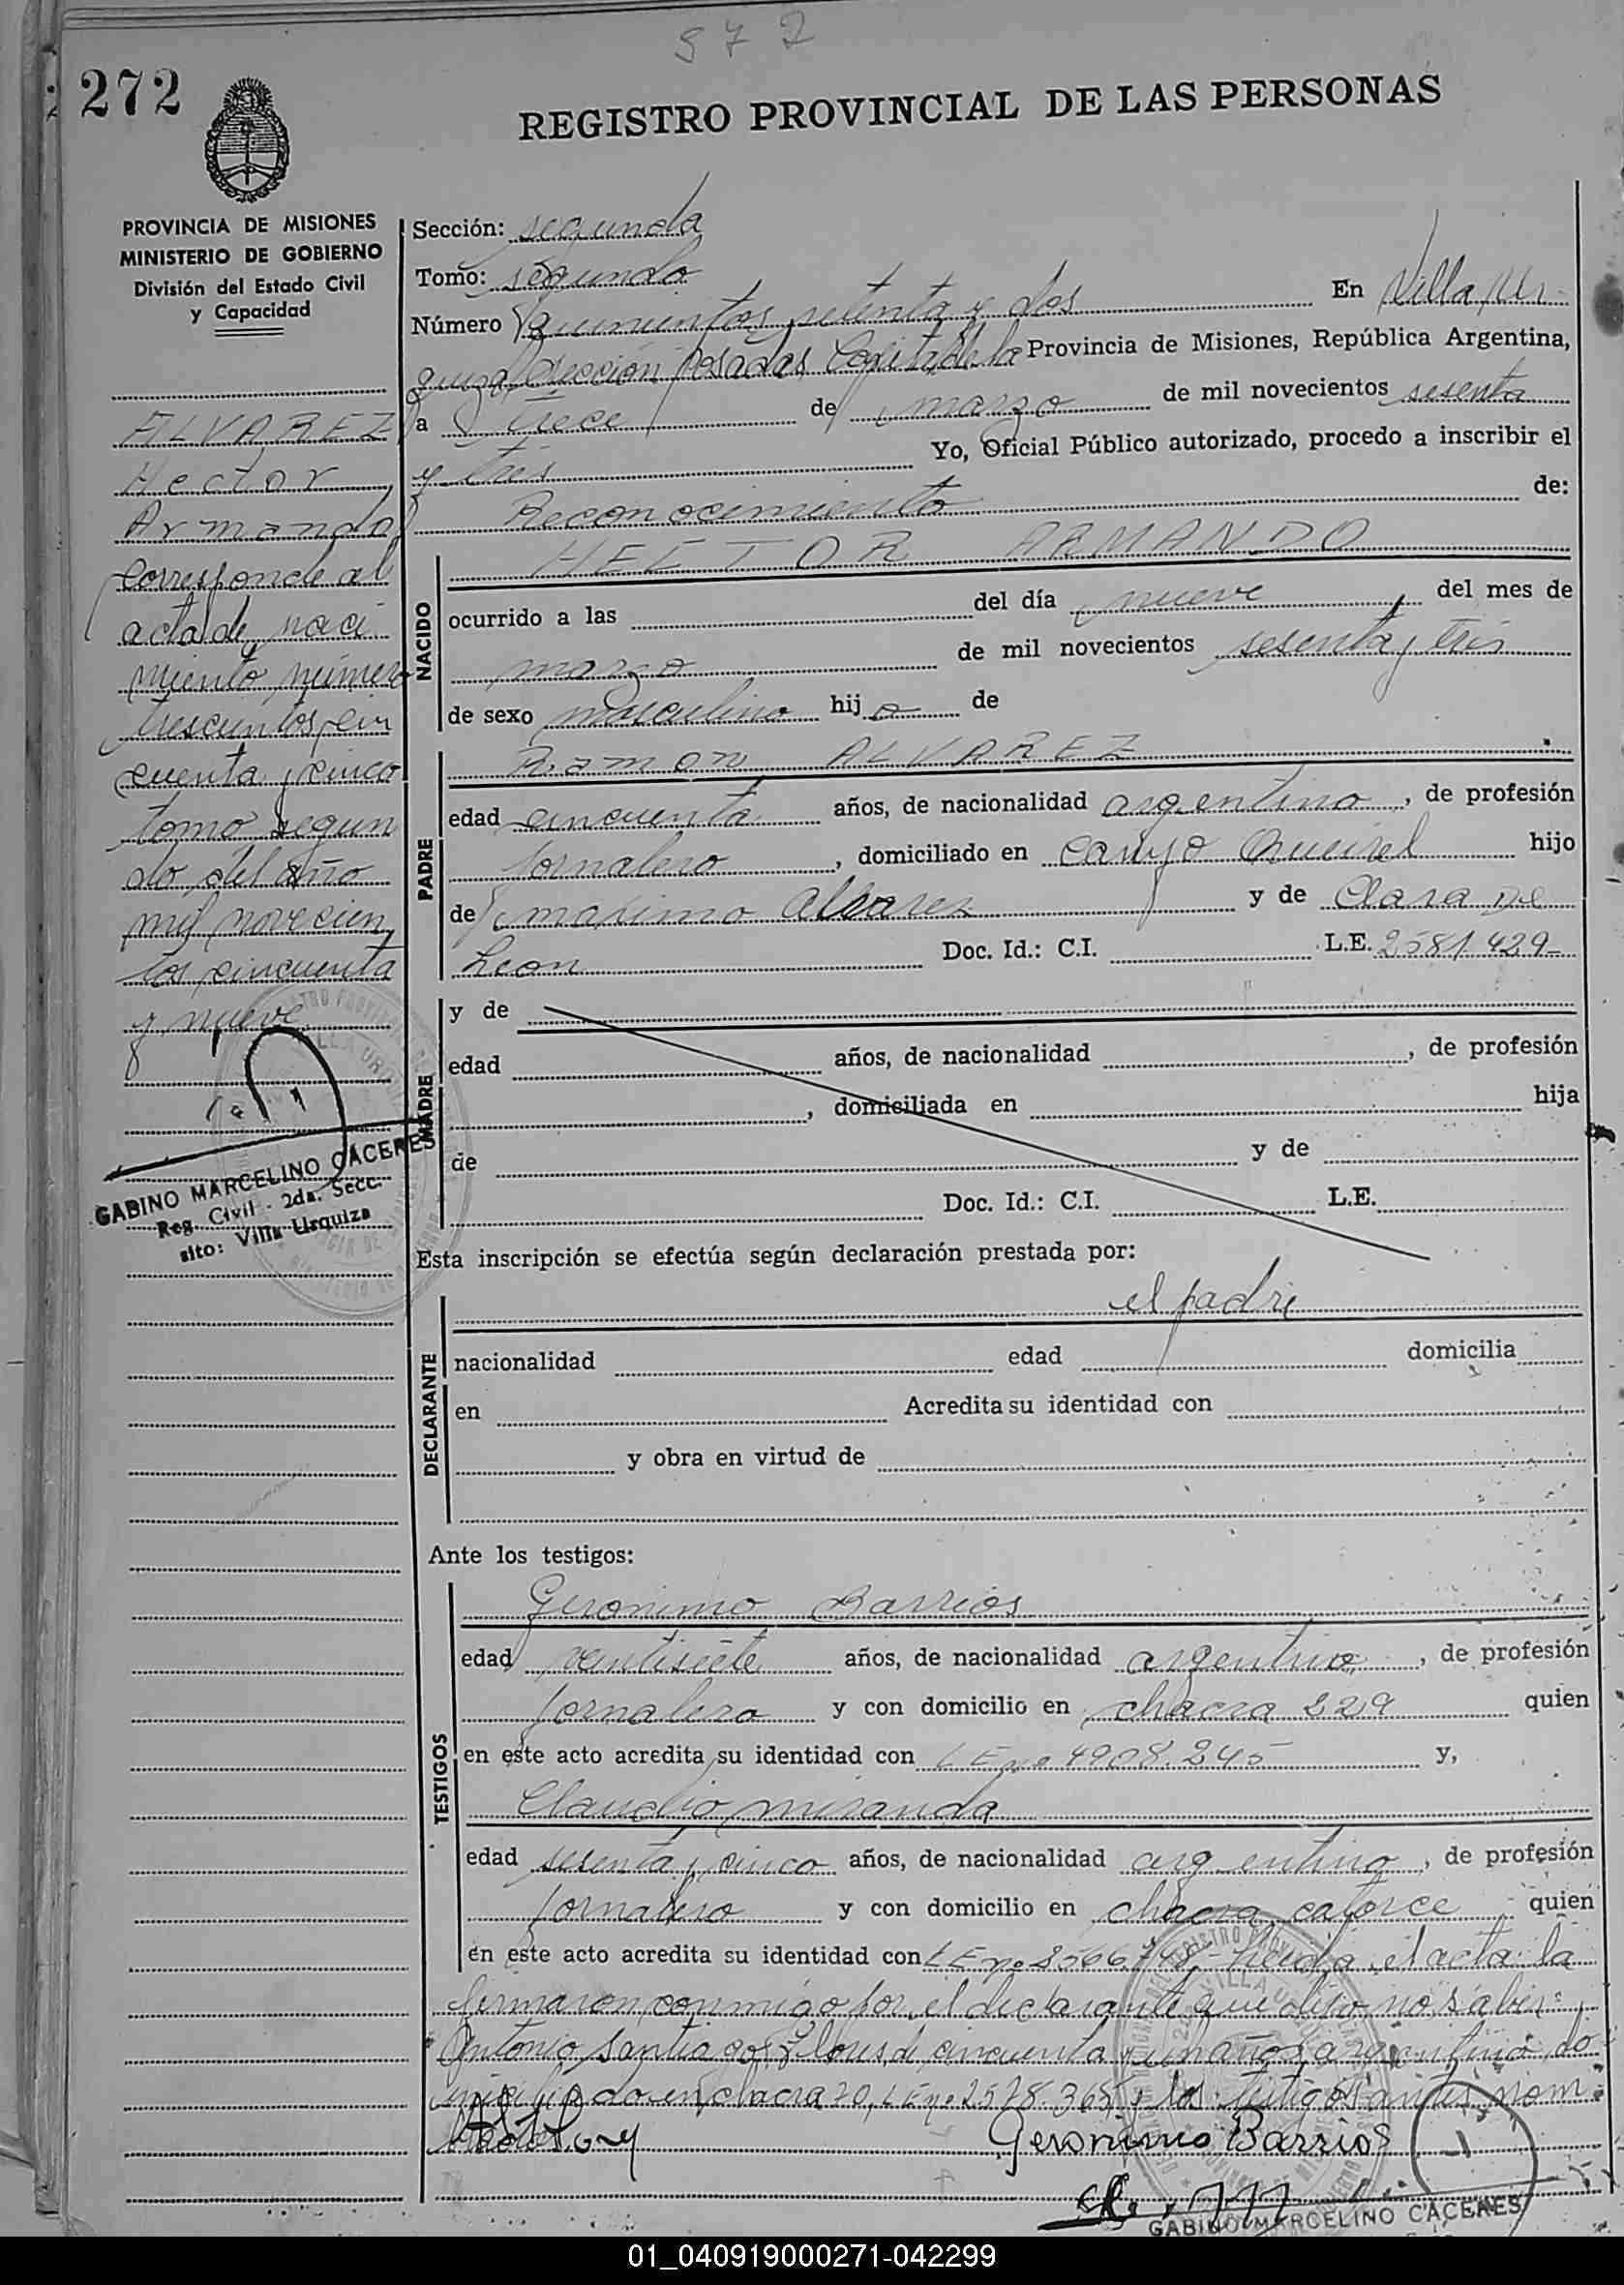 572
272
REGISTRO PROVINCIAL DE LAS PERSONAS
PROVINCIA DE MISIONES
MINISTERIO DE GOBIERNO
División del Estado Civil
y Capacidad
ALVAREZ
Hector
Armando
corresponde al
acta de naci
miento número
trescientos cin
cuenta y cinco
tomo segun
do del año
mil novecien
tos cincuenta
y nueve
GABINO MARCELINO CACERES
Reg. Civil - 2da. Secc.
sito: Villa Urquiza
Sección: segunda
Tomo: segundo
Número quinientos setenta y dos En Villa Ur
quiza Sección Posadas Capital de la Provincia de Misiones, República Argentina,
a trece de marzo de mil novecientos sesenta
y tres Yo, Oficial Público autorizado, procedo a inscribir el
Reconocimiento de:
NACIDO
HECTOR ARMANDO
ocurrido a las del día nueve del mes de
marzo de mil novecientos sesenta y tres
de sexo masculino hijo de
PADRE
Ramon ALVAREZ
edad cincuenta años, de nacionalidad argentino, de profesión
jornalero, domiciliado en hijo
de maximo Alvarez y de Clara De
Leon Doc. Id.: C.I. L.E. 2581.429
MADRE
y de
edad años, de nacionalidad , de profesión
, domiciliada en hija
de y de
Doc. Id.: C.I. L.E.
Esta inscripción se efectúa según declaración prestada por:
el padre
DECLARANTE
nacionalidad edad domicilia
en Acredita su identidad con
y obra en virtud de
Ante los testigos:
TESTIGOS
Geronimo Barrios
edad ventisiete años, de nacionalidad argentino, de profesión
jornalero y con domicilio en chacra 229 quien
en este acto acredita su identidad con LE nº 4908.245 y,
Claudio miranda
edad sesenta y cinco años, de nacionalidad argentino, de profesión
jornalero y con domicilio en chacra catorce quien
en este acto acredita su identidad con LE nº leida el acta la
firmaron conmigo por el declarante que dijo no saber
Antonio Santiago Flores de cincuenta y un años argentino do
miciliado en chacra 70, LE nº 2578.365 y los testigos antes nom
Geronimo Barrios
GABINO MARCELINO CACERES
01_040919000271-042299